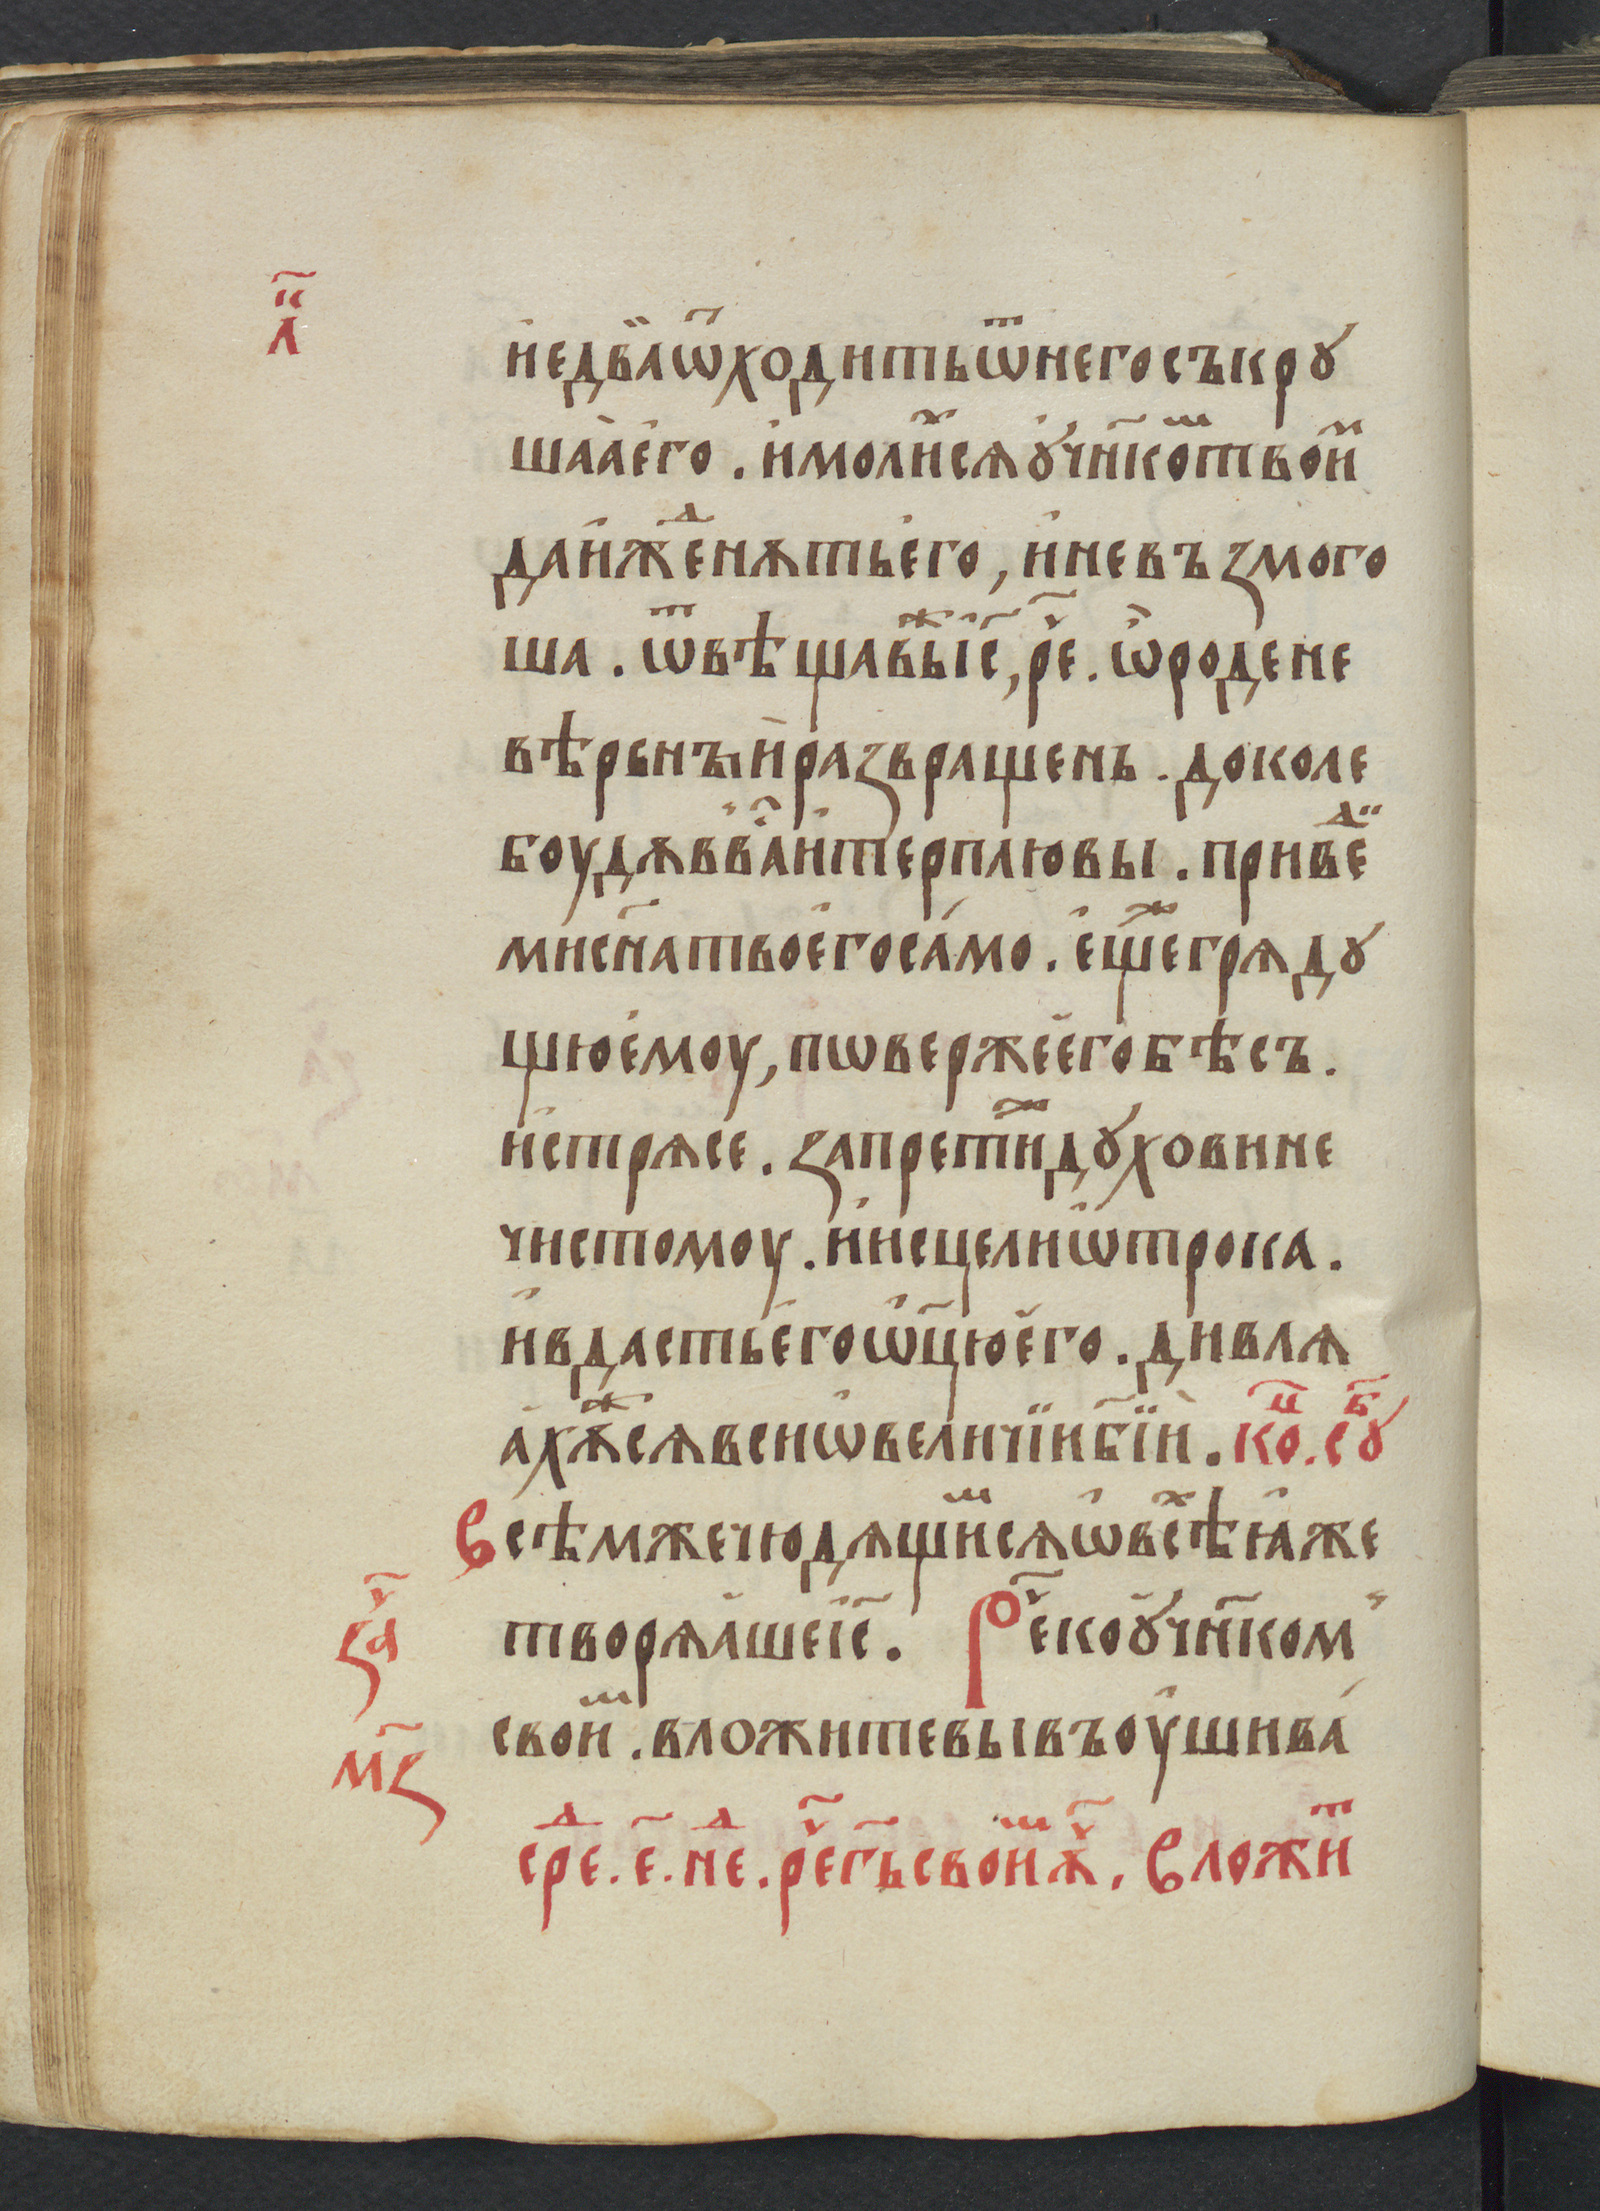 л҃
и҆ едв̏а ѿходить ѿ него съкрꙋ
шаа̀ е҆го . и҆ моли́хсѧ ᲂу҆чн҃кѡⷨ твои́мъ
да и҆жⷣенѧть е҆го , и҆ не възмого
ша . ѿвѣщавꙿжⷷ і҆с҃ , реⷱ҇ . ѽ роде не
вѣрьнъıи҆ развращенъ . доколе
боудѧ в ва́ и҆ терплю вы . привеⷣ
ми сн҃а твоего сѣ́мо . е҆щеⷤ грѧдꙋ
щю е҆моу , повержее҆го бѣсъ .
и҆ стрѧсе . запретиⷤ дꙋховине
чистомоу . и҆ исцели ѿтрока .
и҆ вдасть е҆го ѡц҃ю е҆го . дивлѧ
а҆хꙋⷤсѧ вси ѡ величїи бж҃їи . коⷰ҇ . сꙋⷠ
Всѣмже чюдѧщиⷨсѧ ѡ всѣⷯ ꙗ҆же
творѧа҆ше і҆с҃ . Реⷱ҇ ко ᲂу҆чн҃ком
заⷱ҇ мз҃
свои́ⷨ . вложите вы въ оуши ва́
среⷣ . е҃ . неⷣ . реⷱ҇ гь҃ своиⷨ ѫⷱ҇ . Вложиⷮ